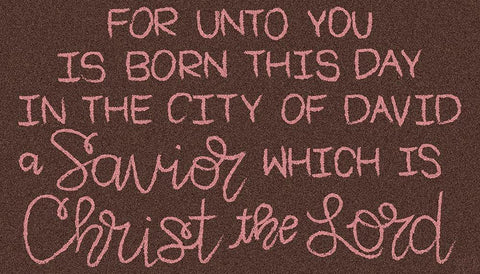 FOR UNTO YOU
IS BORN THIS DAY
IN THE CITY OF DAVID
a Savior WHICH IS
Christ the Lord